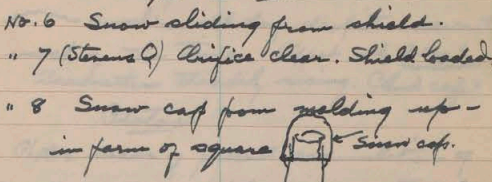 No. 6 Snow sliding from shield.
" 7 (Stevens Q) Orifice clear. Shield loaded
" 8 Snow cap from molding up-
in form of square Snow cap.